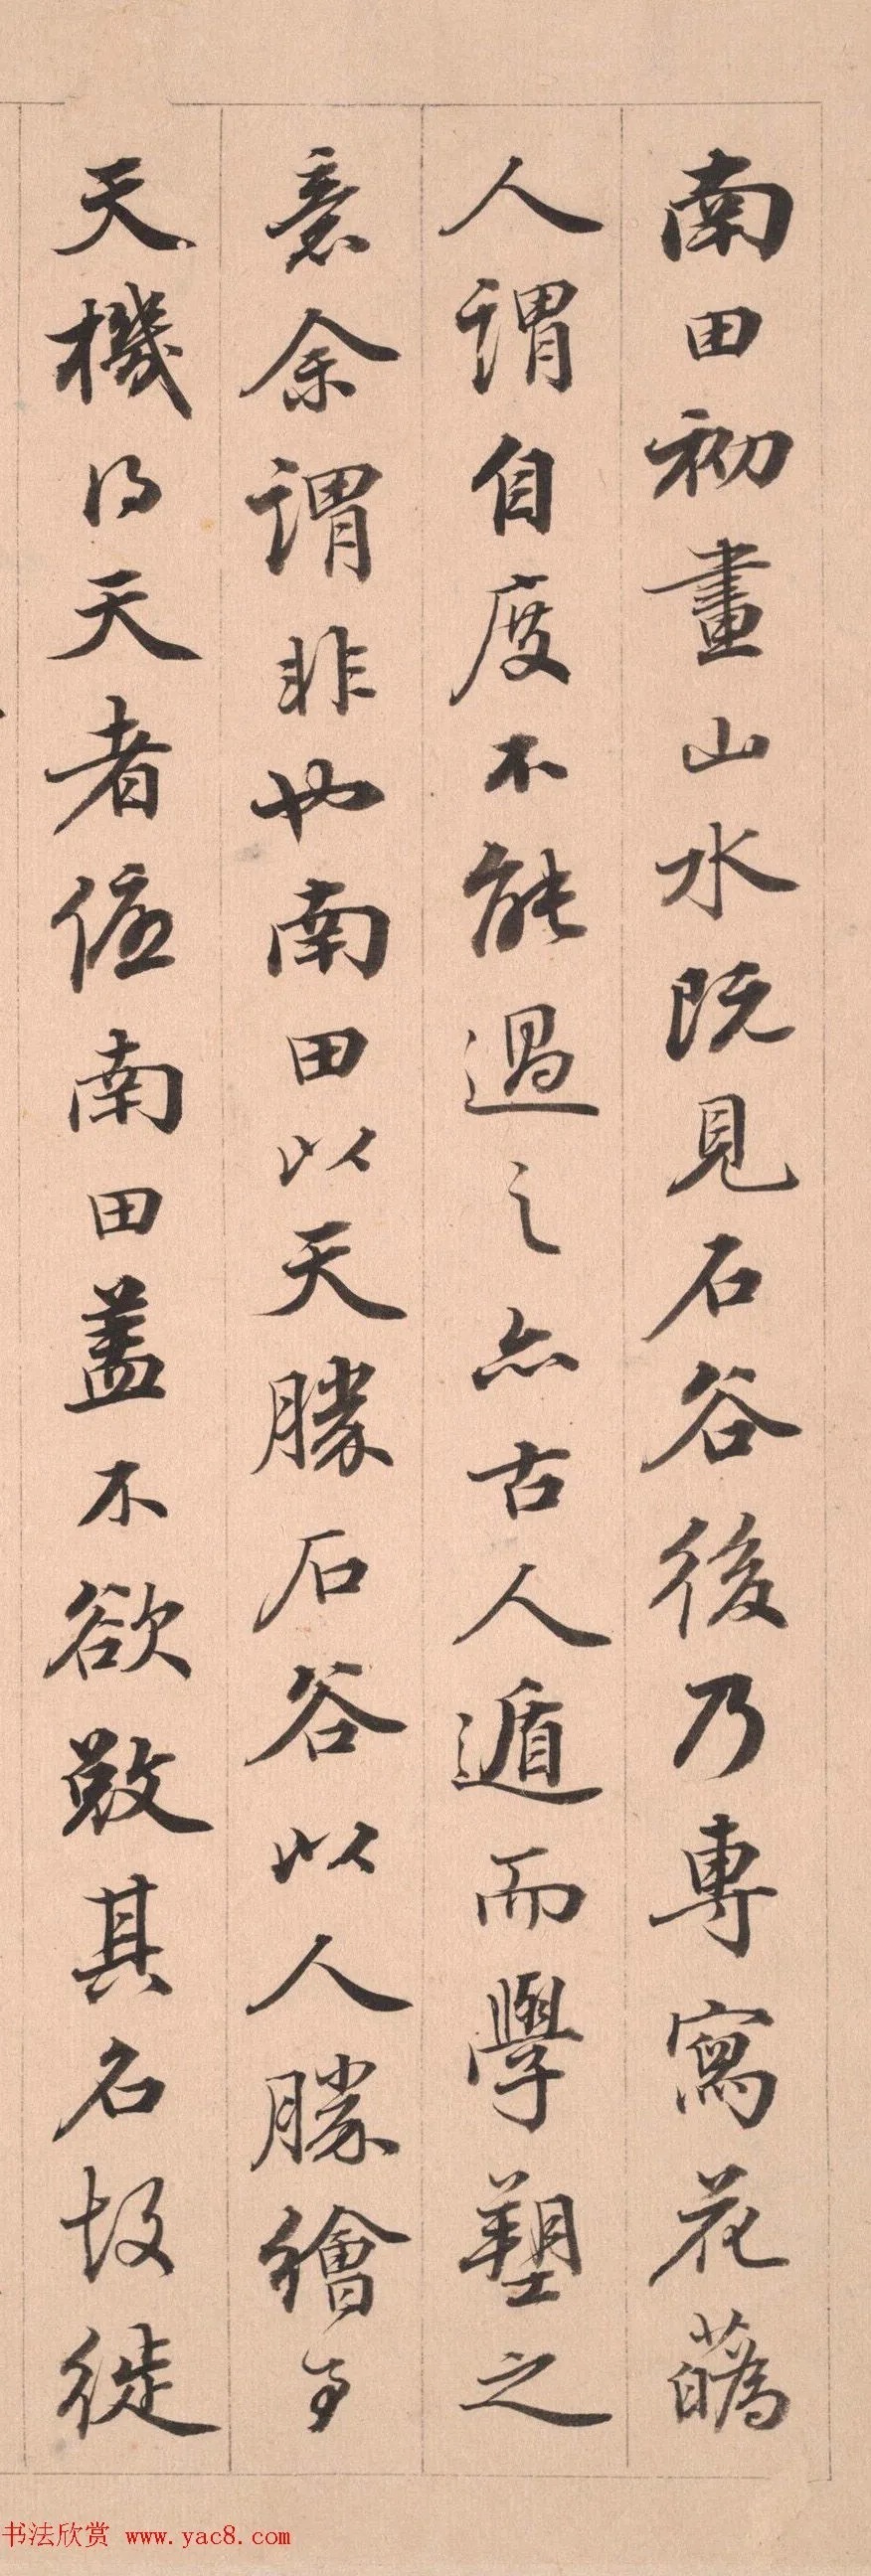 南田初畫山水既見石谷後乃專寫花蘤
人謂自度不能過之亦古人遁而學塑之
意余謂非也南田以天勝石谷以人勝繪事
天機得天者優南田蓋不欲敚其名故徙
书法欣赏 www.yac8.com